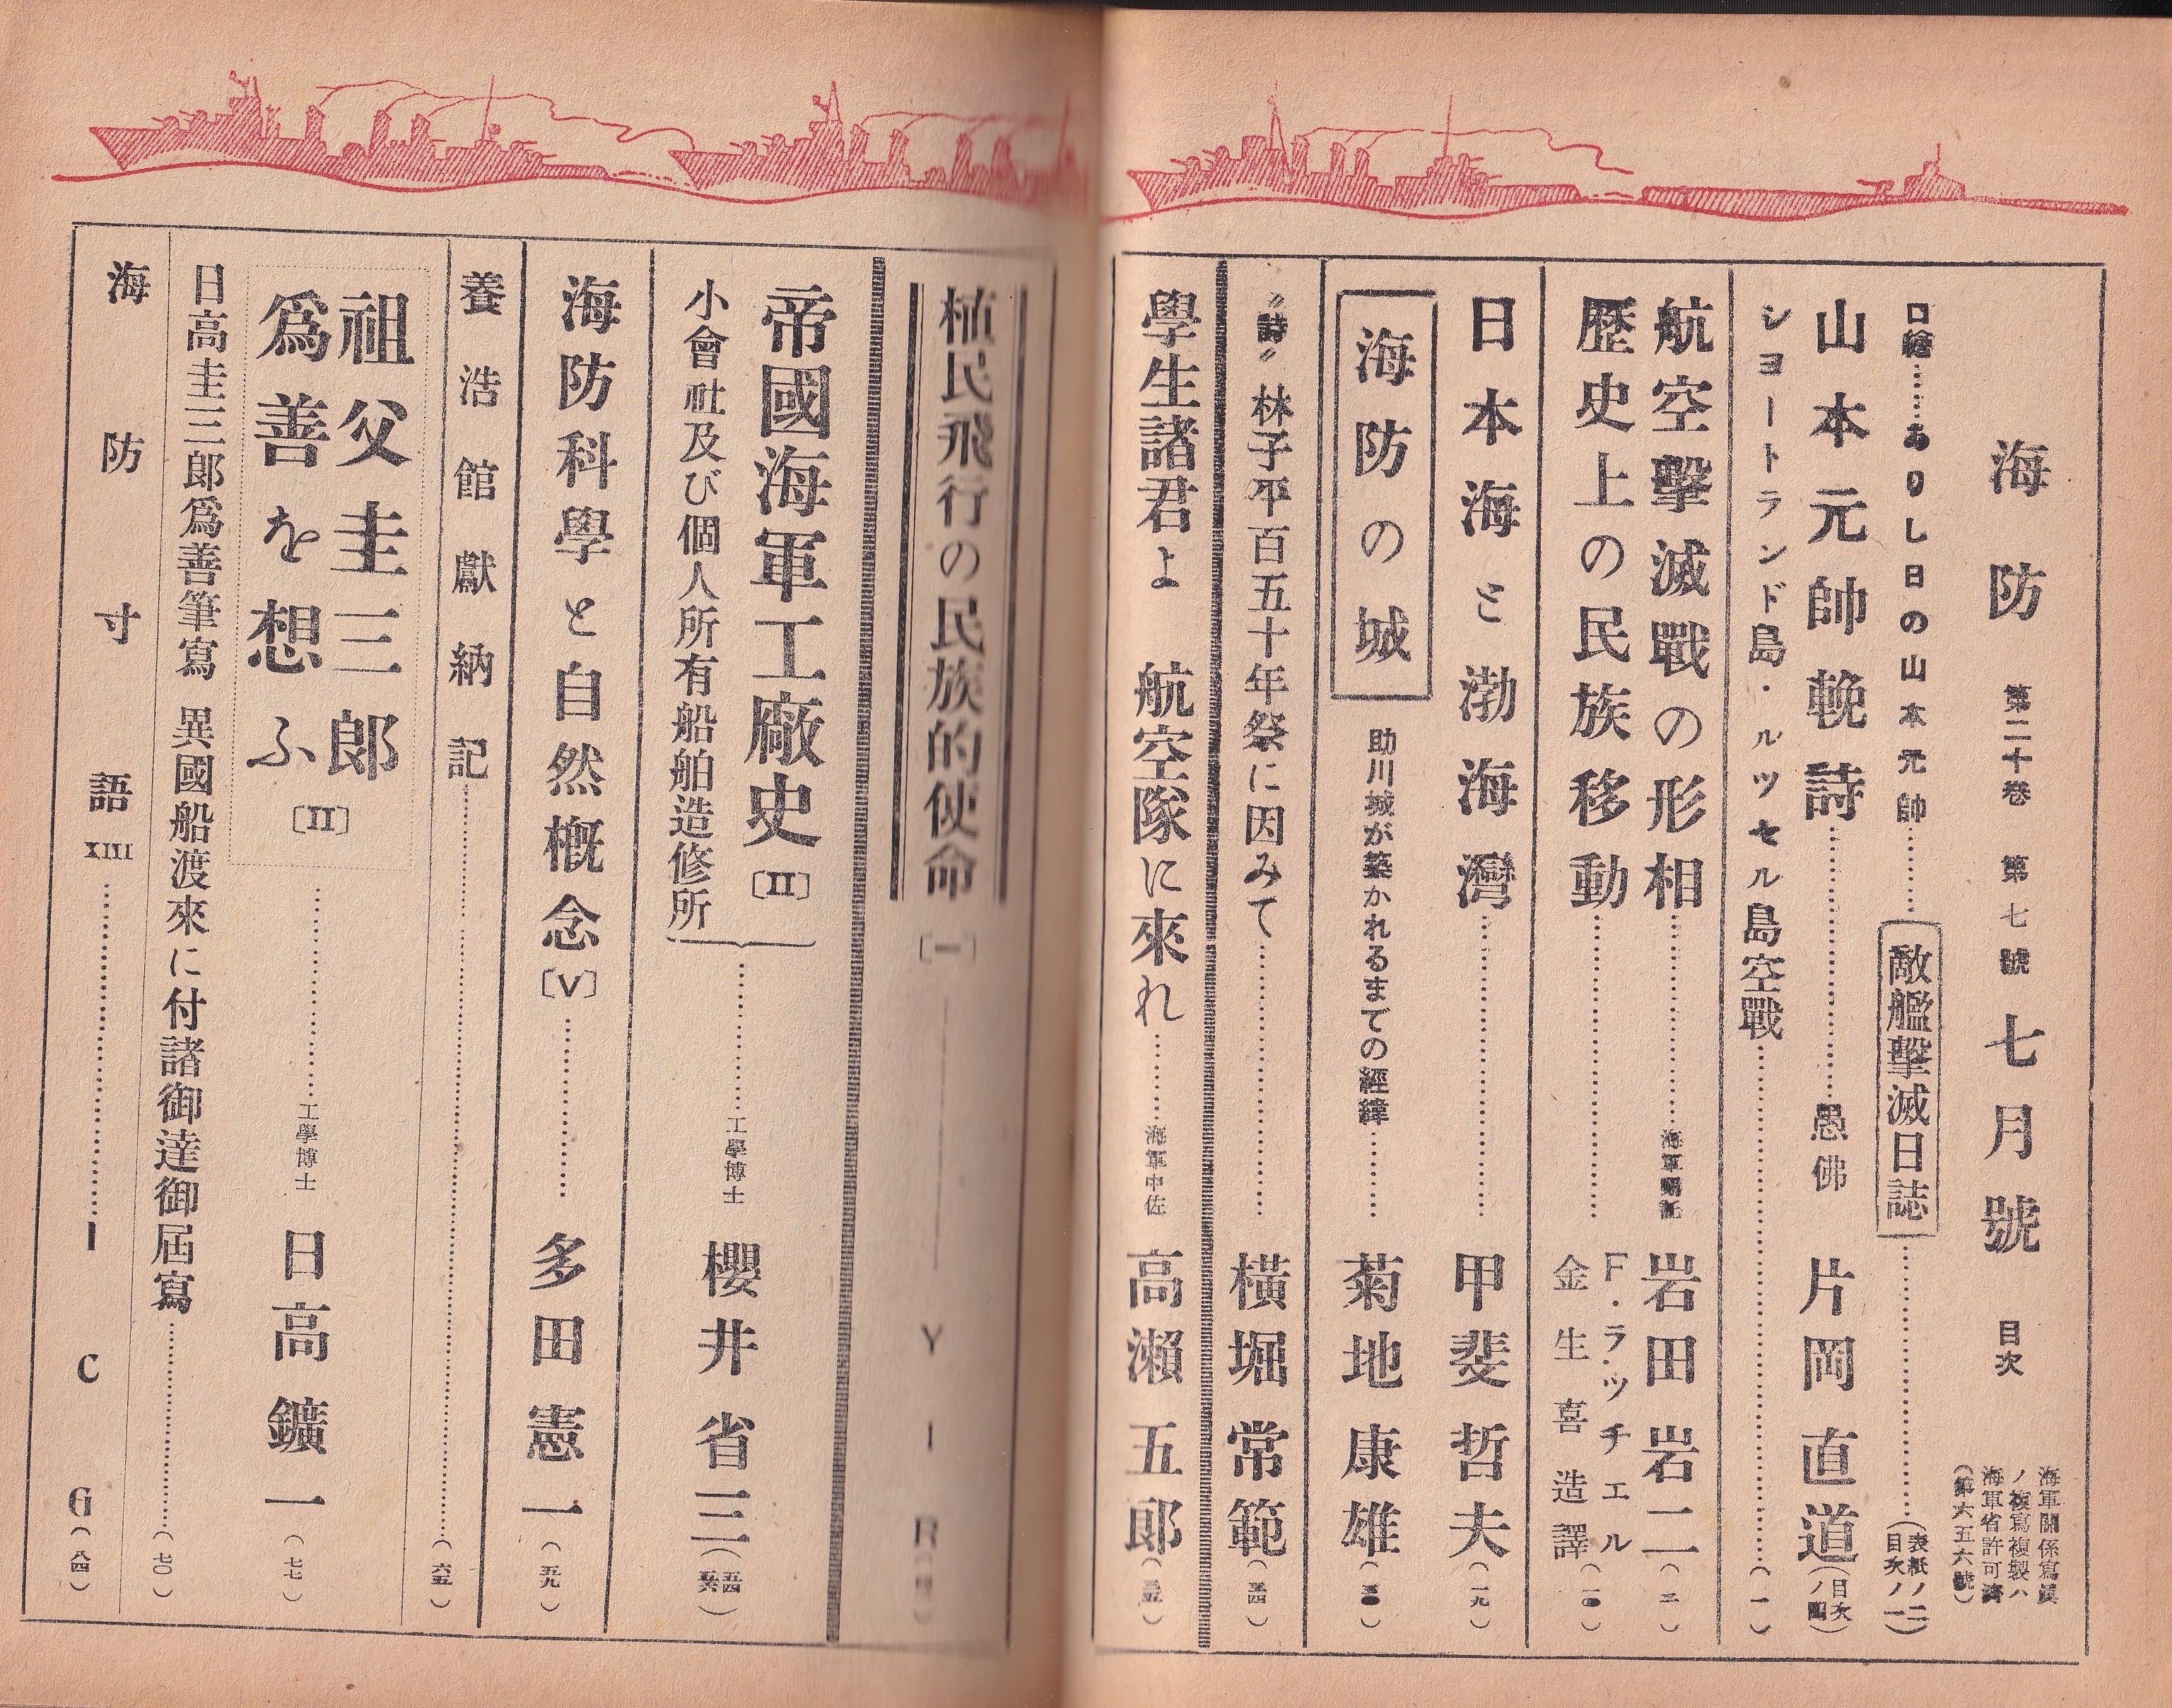 海防 第二十卷 第七號 七月號 目次
海軍關係寫眞
ノ複寫複製ハ
海軍省許可濟
(第六五六號)
口繪……ありし日の山本元帥……敵艦擊滅日誌……(表紙ノ二)(目次ノ一)
山本元帥輓詩……愚佛 片岡直道(目次ノ四)
シヨートランド島・ルツセル島空戰……(一)
航空擊滅戰の形相……岩田岩二(二)
歷史上の民族移動……F・ラッチェル 金生喜造譯(一〇)
日本海と渤海灣……甲斐哲夫(一九)
海防の城 助川城が築かれるまでの經緯……菊地康雄
〃詩〃 林子平百五十年祭に因みて……橫堀常範
學生諸君よ 航空隊に來れ……海軍中佐 高瀨五郎
植民飛行の民族的使命〔一〕―― Y I R
帝國海軍工廠史〔II〕
小會社及び個人所有船舶造修所
……工學博士 櫻井省三
海防科學と自然槪念〔V〕……多田憲一(五九)
養浩館獻納記……(六五)
祖父圭三郎
爲善を想ふ〔II〕……工學博士 日高鑛一(七七)
日高圭三郎爲善筆寫 異國船渡來に付諸御達御屆寫……(七〇)
海防寸語 XIII……I C G(八四)